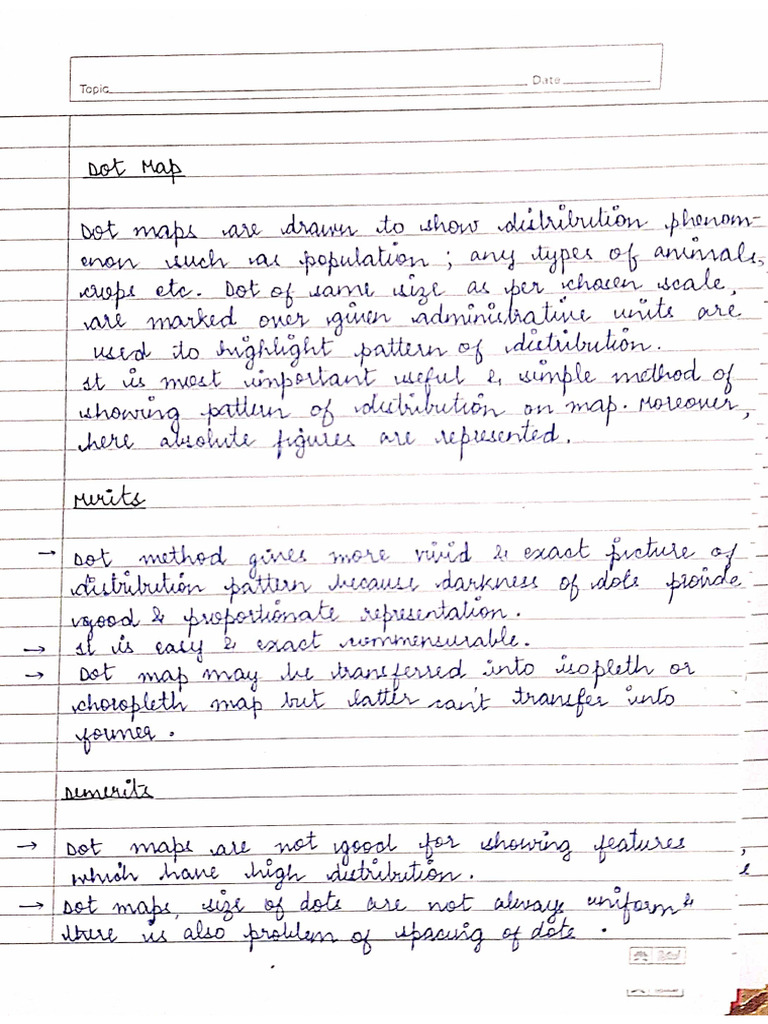 Topic Date
Dot Map
Dot maps are drawn to show distribution phenom-
enon such as population ; any types of animals,
crops etc. Dot of same size as per chosen scale,
are marked over given administrative units are
used to highlight pattern of distribution.
It is most important useful & simple method of
showing pattern of distribution on map. Moreover,
here absolute figures are represented.
Merits
→ Dot method gives more vivid & exact picture of
distribution pattern because darkness of dots provide
good & proportionate representation.
→ It is easy & exact commensurable.
→ Dot map may be transferred into isopleth or
choropleth map but latter can't transfer into
former .
Demerits
→ Dot maps are not good for showing features
which have high distribution.
→ Dot maps, size of dots are not always uniform &
there is also problem of spacing of dots .